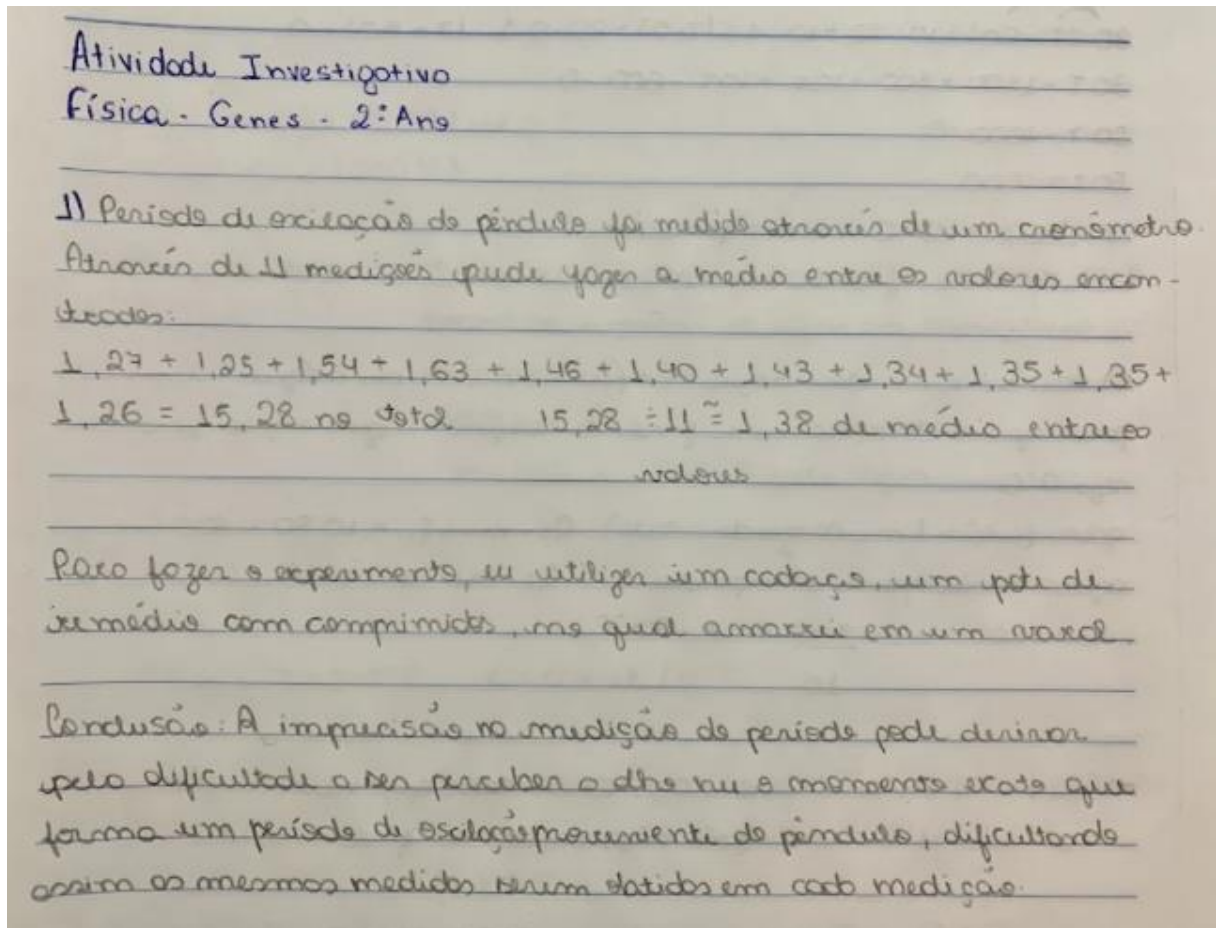 Atividade Investigativa
Física - Genes - 2º Ano
1) Período de oscilação do pêndulo foi medido através de um cronômetro.
Através de 11 medições pude fazer a média entre os valores encon-
trados:
1,27 + 1,25 + 1,54 + 1,63 + 1,46 + 1,40 + 1,43 + 1,34 + 1,35 + 1,35 +
1,26 = 15,28 no total 15,28 ÷ 11 ≅ 1,38 de média entre os
valores
Para fazer o experimento, eu utilizei um cadarço, um pote de
remédio com comprimidos, no qual amarrei em um varal
Conclusão: A imprecisão na medição do período pode derivar
pela dificultade a ser perceber a olho nu o momento exato que
forma um período de oscilação do pêndulo, dificultando
assim as mesmas medidas serem obtidas em cada medição.